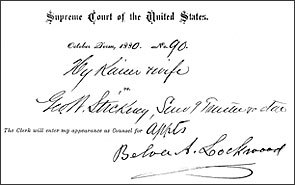 Supreme Court of the United States.
October Term, 1880. No. 90.
Hy Kaiser & wife
vs.
Geo W. Stickney, Surv'g Trustee & others
The Clerk will enter my appearance as Counsel for Applts
Belva A. Lockwood